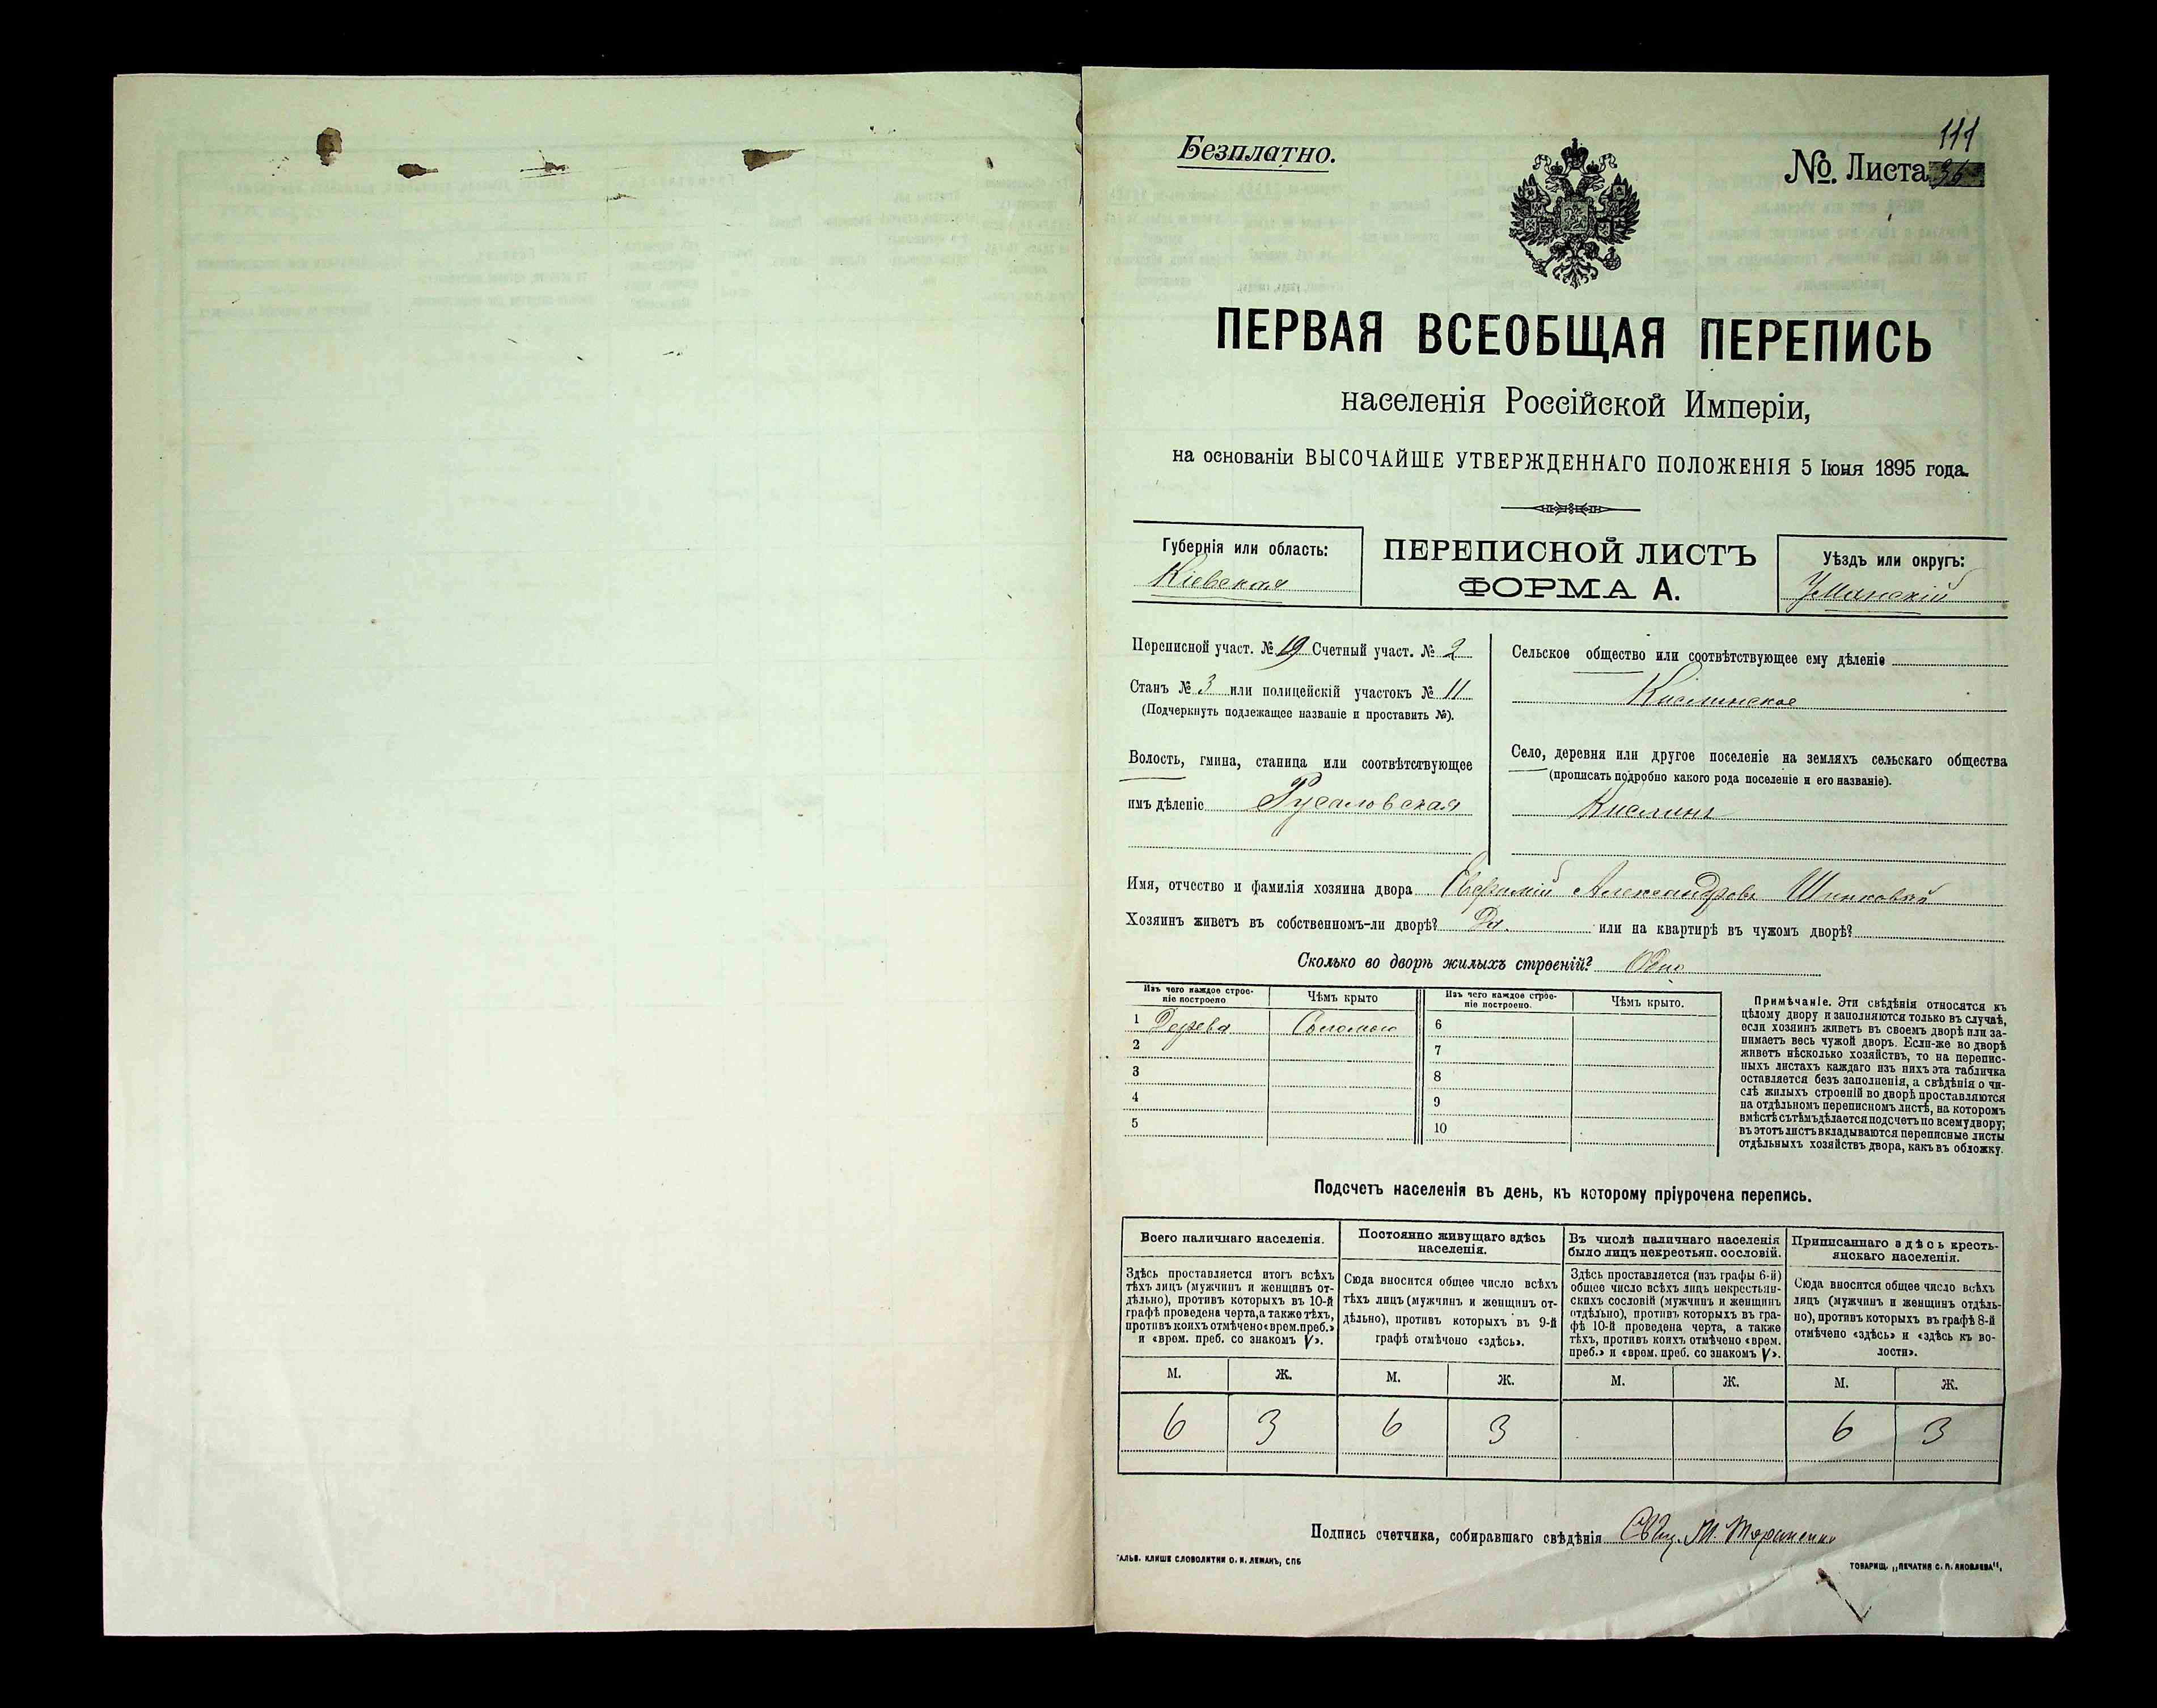 Безплатно.
111
№. Листа 36
ПЕРВАЯ ВСЕОБЩАЯ ПЕРЕПИСЬ
населенія Россійской Имперіи,
на основаніи ВЫСОЧАЙШЕ УТВЕРЖДЕННАГО ПОЛОЖЕНІЯ 5 Іюня 1895 года.
Губернія или область:
Кіевская
ПЕРЕПИСНОЙ ЛИСТЪ
ФОРМА А.
Уѣздъ или округъ:
Уманскій
Переписной участ. № 19 Счетный участ. № 2
Станъ № 3 или полицейскій участокъ № 11
(Подчеркнуть подлежащее названіе и проставить №).
Волость, гмина, станица или соотвѣтствующее
имъ дѣленіе Русаловская
Сельское общество или соотвѣтствующее ему дѣленіе
Кислинское
Село, деревня или другое поселеніе на земляхъ сельскаго общества
(прописать подробно какого рода поселеніе и его названіе).
Кислинъ
Имя, отчество и фамилія хозяина двора Евфимій Александровъ Шинковой
Хозяинъ живетъ въ собственномъ-ли дворѣ? Да. или на квартирѣ въ чужомъ дворѣ?
Сколько во дворѣ жилыхъ строеній? Одно
Изъ чего каждое строе-
ніе построено
Чѣмъ крыто
Изъ чего каждое строе-
ніе построено.
Чѣмъ крыто.
1 Дерева Соломою 6
2 7
3 8
4 9
5 10
Примѣчаніе. Эти свѣдѣнія относятся къ
цѣлому двору и заполняются только въ случаѣ,
если хозяинъ живетъ въ своемъ дворѣ или за-
нимаетъ весь чужой дворъ. Если-же во дворѣ
живетъ нѣсколько хозяйствъ, то на перепис-
ныхъ листахъ каждаго изъ нихъ эта табличка
оставляется безъ заполненія, а свѣдѣнія о чи-
слѣ жилыхъ строеній во дворѣ проставляются
на отдѣльномъ переписномъ листѣ, на которомъ
вмѣстѣ съ тѣмъ дѣлается подсчетъ по всему двору;
въ этотъ листъ вкладываются переписные листы
отдѣльныхъ хозяйствъ двора, какъ въ обложку.
Подсчетъ населенія въ день, къ которому пріурочена перепись.
Всего наличнаго населенія.
Здѣсь проставляется итогъ всѣхъ
тѣхъ лицъ (мужчинъ и женщинъ от-
дѣльно), противъ которыхъ въ 10-й
графѣ проведена черта, а также тѣхъ,
противъ коихъ отмѣчено «врем. преб.»
и «врем. преб. со знакомъ V».
Постоянно живущаго здѣсь
населенія.
Сюда вносится общее число всѣхъ
тѣхъ лицъ (мужчинъ и женщинъ от-
дѣльно), противъ которыхъ въ 9-й
графѣ отмѣчено «здѣсь».
Въ числѣ наличнаго населенія
было лицъ некрестьян. сословій.
Здѣсь проставляется (изъ графы 6-й)
общее число всѣхъ лицъ некрестьян-
скихъ сословій (мужчинъ и женщинъ
отдѣльно), противъ которыхъ въ гра-
фѣ 10-й проведена черта, а также
тѣхъ, противъ коихъ отмѣчено «врем.
преб.» и «врем. преб. со знакомъ V».
Приписаннаго здѣсь кресть-
янскаго населенія.
Сюда вносится общее число всѣхъ
лицъ (мужчинъ и женщинъ отдѣль-
но), противъ которыхъ въ графѣ 8-й
отмѣчено «здѣсь» и «здѣсь къ во-
лости».
М. Ж. М. Ж. М. Ж. М. Ж.
6 3 6 3 6 3
Подпись счетчика, собиравшаго свѣдѣнія
ГАЛЬВ. КЛИШЕ СЛОВОЛИТНИ О. И. ЛЕМАНЪ, СПБ
ТОВАРИЩ. „ПЕЧАТНЯ С. П. ЯКОВЛЕВА“.